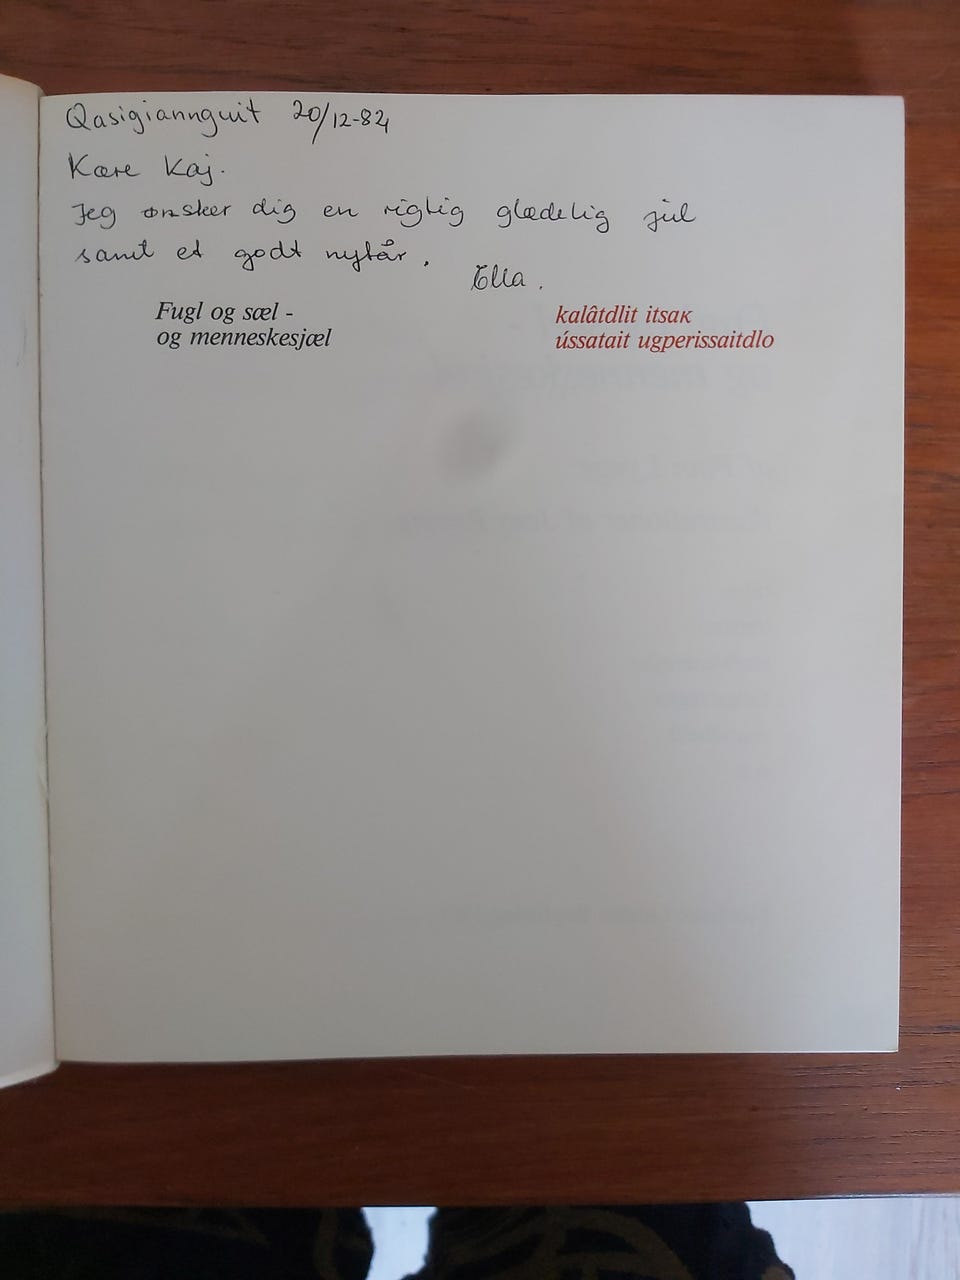 Qasigiannguit 20/12-82
Kære Kaj.
Jeg ønsker dig en rigtig glædelig jul
samt et godt nytår.
Ella.
Fugl og sæl -
og menneskesjæl
kalâtdlit itsaĸ
ússatait ugperissaitdlo